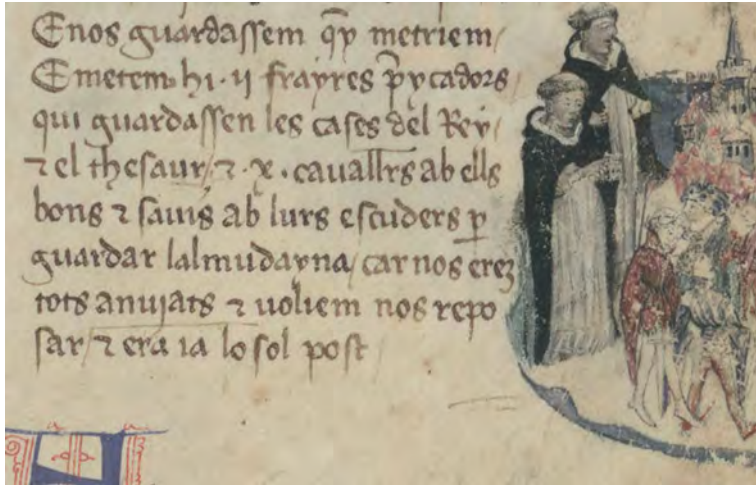 Enos guardassem q̄ y metriem
E metem hi · ii frayres p̄ycadors
qui guardassen les cases del Rey
⁊ el thesaur, ⁊ · x · cauallr̄s ab ells
bons ⁊ sauis ab lurs escuders ꝑ
guardar lalmudayna, car nos erēꝫ
tots anujats ⁊ uoliem nos repo
sar, ⁊ era ia lo sol post